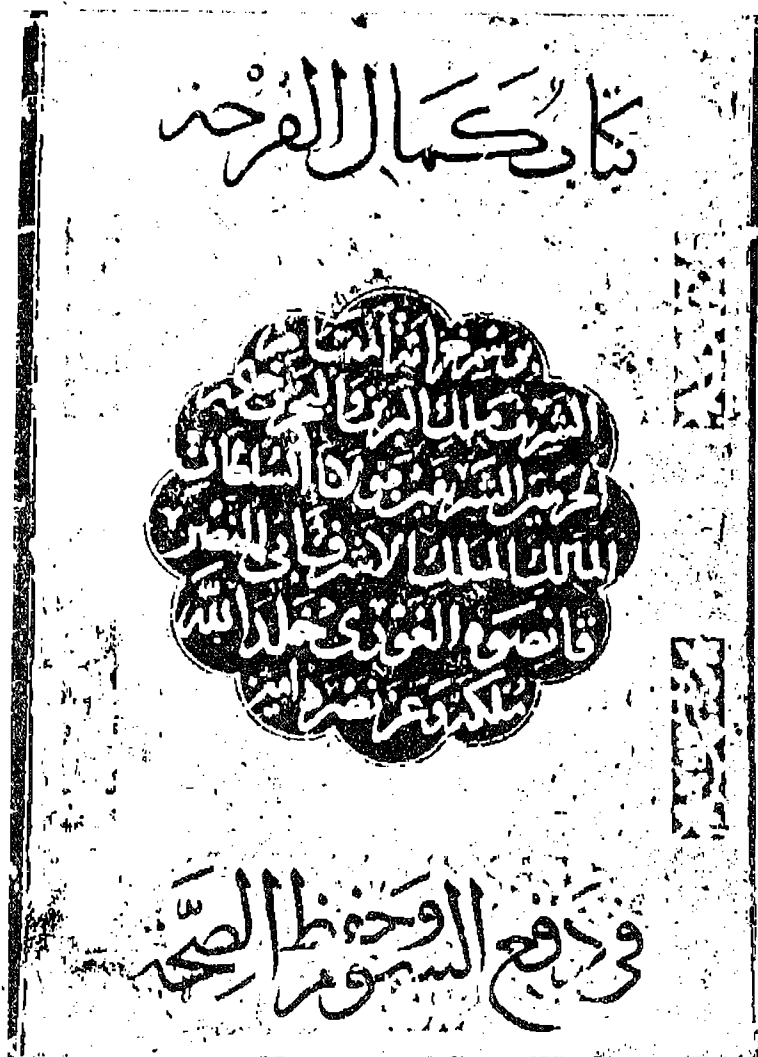 كتاب كمال الفرحه
برسم خزانة المقام
الشريف ملك البرين والبحرين خادم
الحرمين الشريفين مولانا السلطان
المالك الملك الاشرف ابي النصر
قانصوه الغوري خلد الله
ملكه وعز نصره امين
في دفع السموم وحفظ الصحه